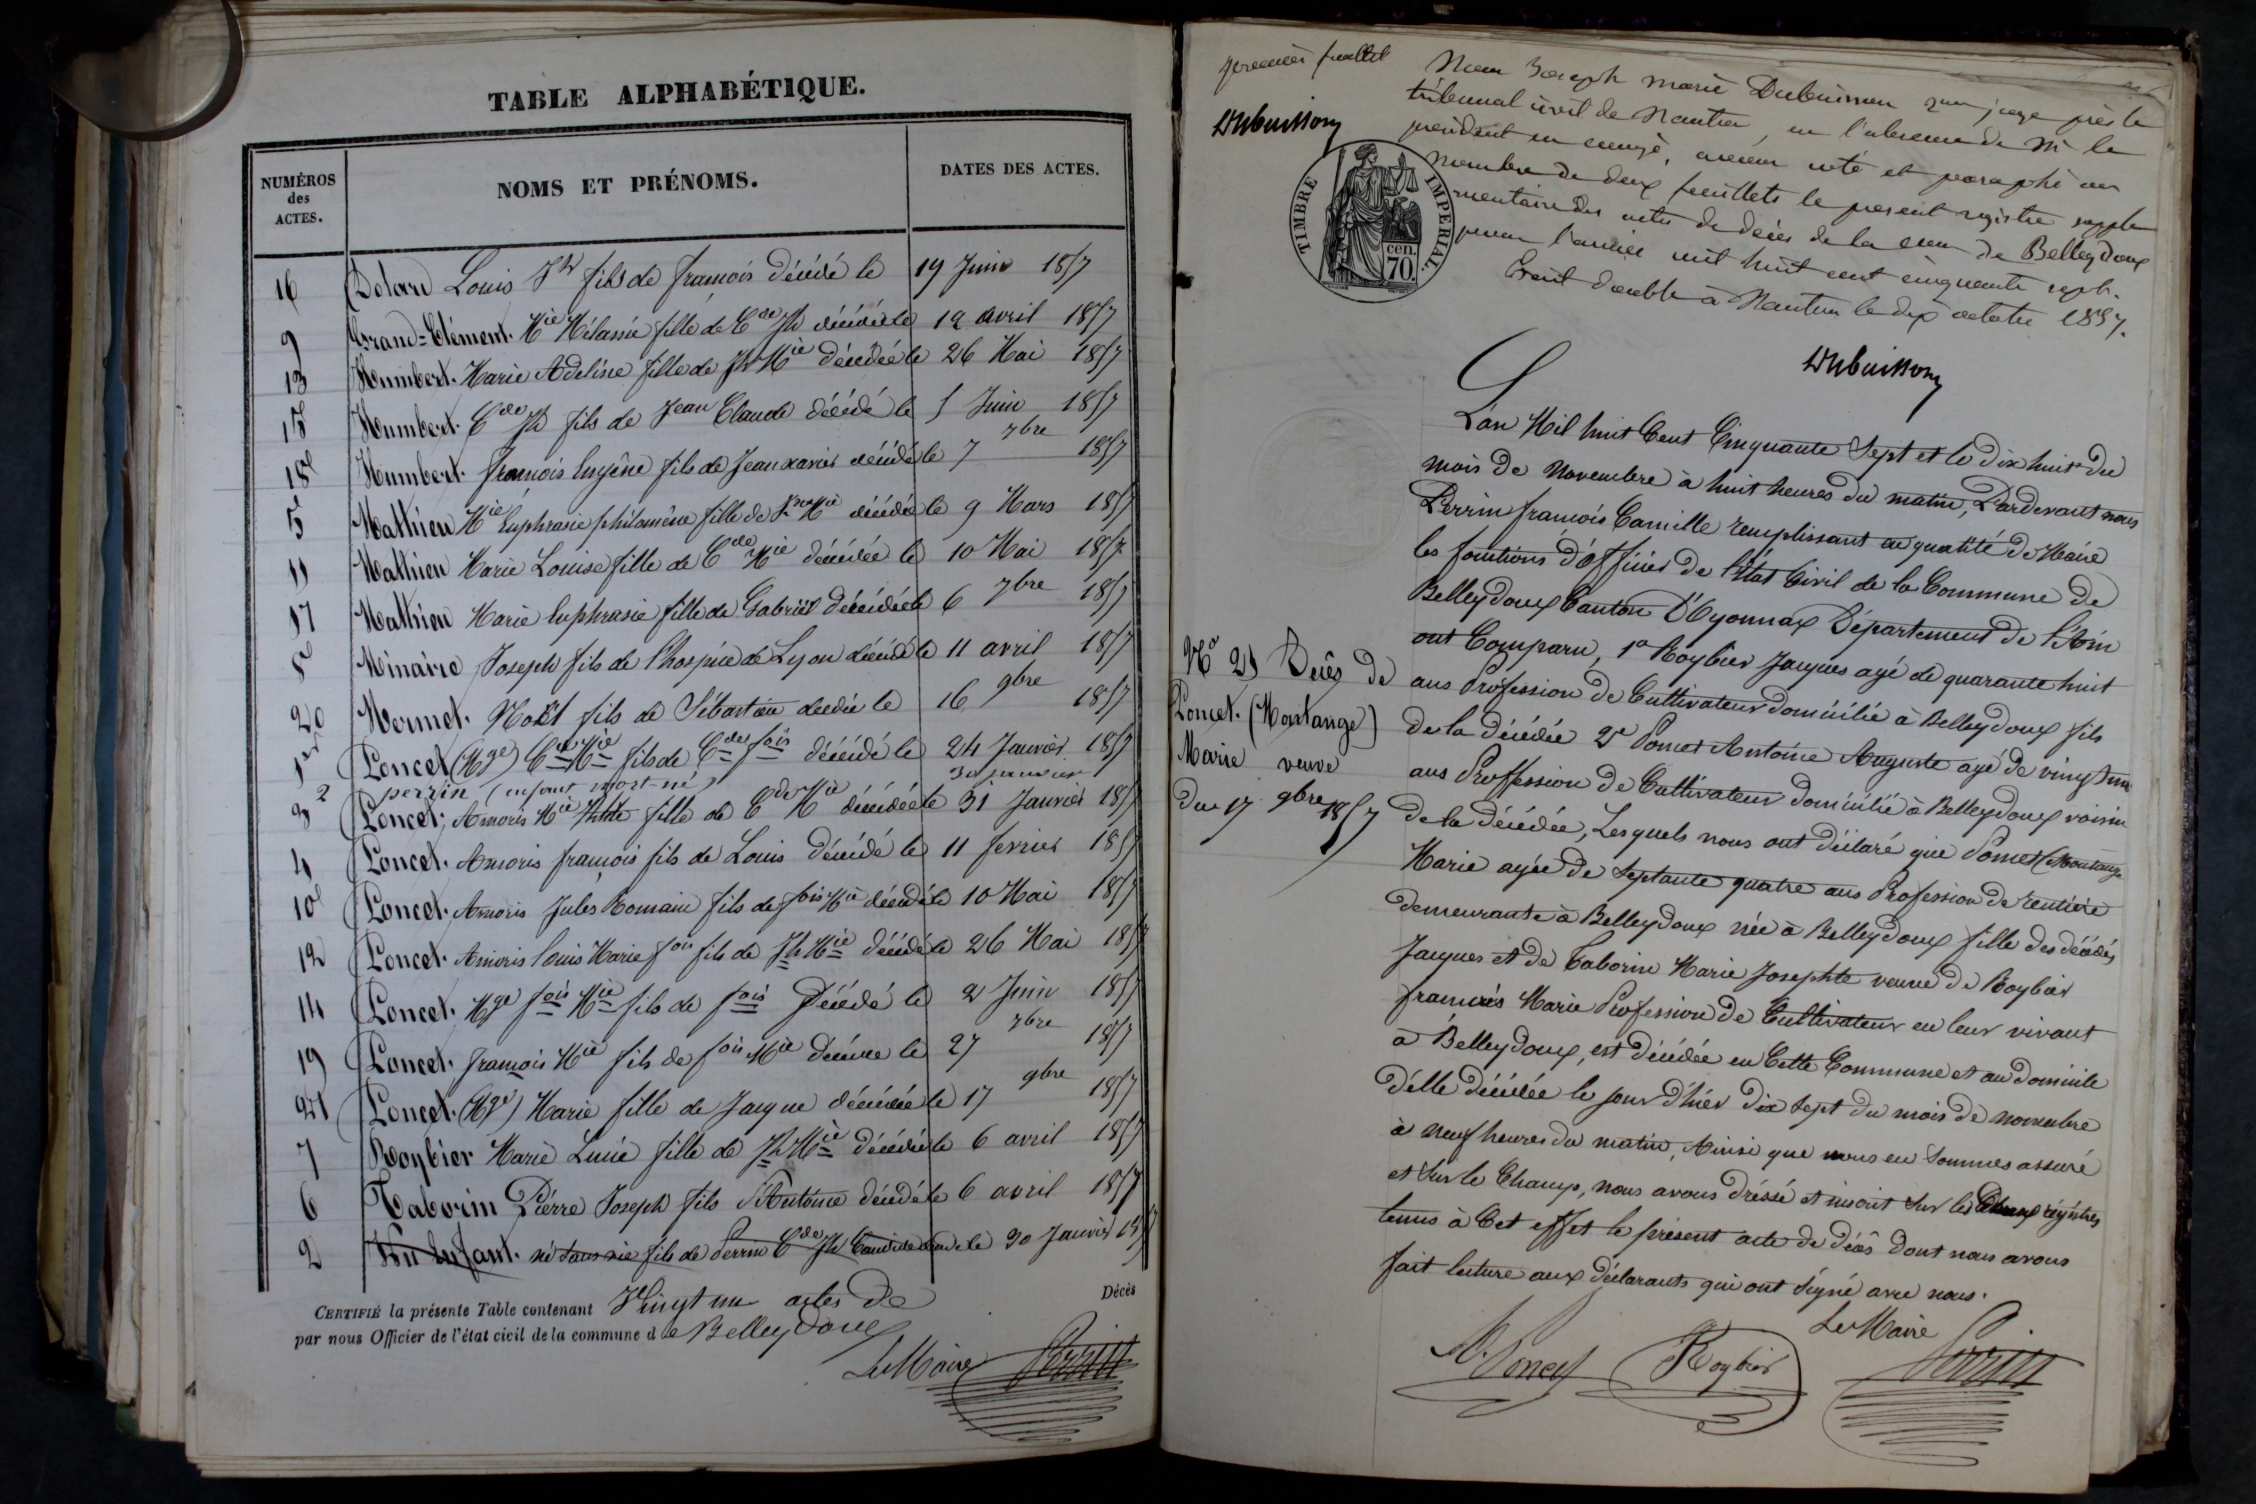 TABLE ALPHABÉTIQUE.
NUMÉROS
des
ACTES.
NOMS ET PRÉNOMS.
DATES DES ACTES.
16 Louis Jh fils de françois décédé le 19 Juin 1857
9 Grand=Clément. Mie Mélanie fille de Cde Jh décédée le 12 avril 1857
13 Humbert. Marie Adeline fille de Jh Mie décédée le 26 Mai 1857
15 Humbert. Cde Jh fils de Jean Claude décédé le 5 Juin 1857
18 Humbert. françois Eugêne fils de Jean xavier décédé le 7 7bre 1857
5 Mathieu Mie Euphrasie philomène fille de Mie décédée le 9 Mars 1857
11 Mathieu Marie Louise fille de Cde Mie décédée le 10 Mai 1857
17 Mathieu Marie Euphrasie fille de Gabriel décédée le 6 7bre 1857
8 Minaire Joseph fils de l'hospice de Lyon décédé le 11 avril 1857
20 Mermet. Noël fils de Sébastien décédé le 16 9bre 1857
1er Poncet (Mge) Cde Mie fils de Cde fois décédé le 24 Janvier 1857
2 perrin (enfant mort-né) 30 janvier
3 Poncet. Amoris Mie fille de Cde Mie décédée le 31 Janvier 1857
4 Poncet. Amoris françois fils de Louis décédé le 11 fevrier 1857
10 Poncet. Amoris Jules Romain fils de fois Mie décédé le 10 Mai 1857
12 Poncet. Amoris louis Marie fois fils de Jh Mie décédé le 26 Mai 1857
14 Poncet. Mge fois Mie fils de fois Décédé le 2 Juin 1857
19 Poncet. françois Mie fils de fois Mie décédé le 27 7bre 1857
21 Poncet. (Mge) Marie fille de Jacque décédée le 17 9bre 1857
7 Roybier Marie Lucie fille de Jh Mie décédée le 6 avril 1857
6 Taborin Pierre Joseph fils d'Antoine décédé le 6 avril 1857
2 Un Enfant. né sans vie fils de Perrin Cde Jh Candide décédé le 30 Janvier 1857
CERTIFIÉ la présente Table contenant Vingt un actes de Décès
par nous Officier de l'état civil de la commune de Belleydoux
Le Maire Perrin
premier feuillet
Dubuisson
Nous Joseph marie Dubuisson juge près le
tribunal civil de Nantua, en l'absence de Mr le
président en congé, avons coté et paraphé au
nombre de deux feuillets le présent registre supplé
mentaire des actes de décès de la com de Belleydoux
pour l'année mil huit cent cinquante sept.
Fait double à Nantua le dix octobre 1857.
TIMBRE IMPERIAL.
cen.
70.
Dubuisson
L'an Mil huit Cent Cinquante Sept et le Dix huit du
mois de Novembre à huit heures du matin, Pardevant nous
Perrin françois Camille remplissant en qualité de Maire
les fonctions d'officier de l'état Civil de la Commune de
Belleydoux Canton D'Oyonnax Département de l'Ain
ont Comparu, 1° Roybier Jacques agé de quarante huit
ans Profession de Cultivateur domicilié à Belleydoux fils
de la décédée 2° Poncet Antoine Auguste agé de vingt un
ans Proffession de Cultivateur domicilié à Belleydoux voisin
de la décédée, Lesquels nous ont déclaré que Poncet (Montange
Marie agée de Septante quatre ans Profession de rentière
demeurante à Belleydoux née à Belleydoux fille des décédés
Jacques et de Taborin Marie Josephte veuve de Roybier
françois Marie Profession de Cultivateur en leur vivant
à Belleydoux, est décédée en Cette Commune et au domicile
d'elle décédée le jour d'hier dix Sept du mois de novembre
à neuf heures du matin, Ainsi que nous en Sommes assuré
et Sur le Champ, nous avons dréssé et inscrit Sur les deux régistres
tenus à Cet effet le présent acte de décès dont nous avons
fait lecture aux déclarants qui ont Signé avec nous.
N° 21 Decês de
Poncet. (Montange)
Marie veuve
du 17 9bre 1857
Le Maire
A. Poncet Roybier Perrin